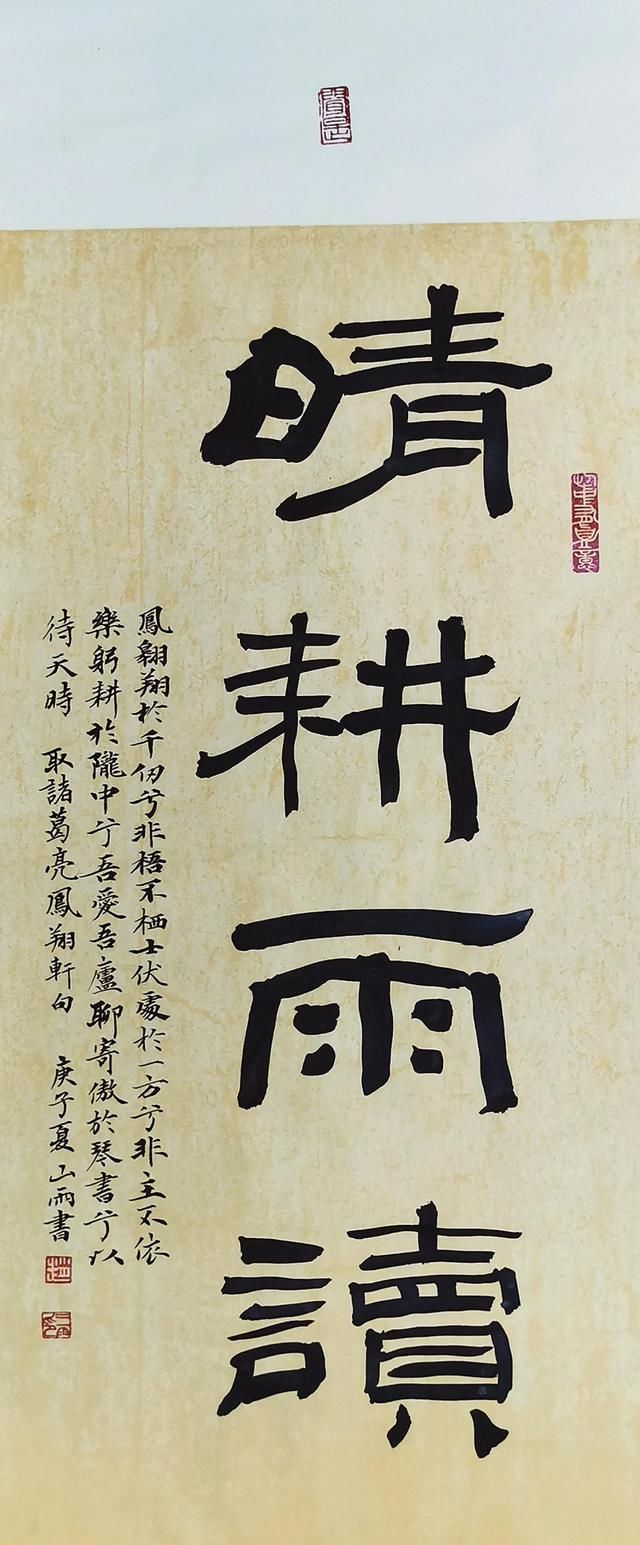 晴耕雨讀
鳳翱翔於千仞兮非梧不栖士伏處於一方兮非主不依
樂躬耕於隴中兮吾愛吾廬聊寄傲於琴書兮以
待天時 取諸葛亮鳳翔軒句 庚子夏山雨書